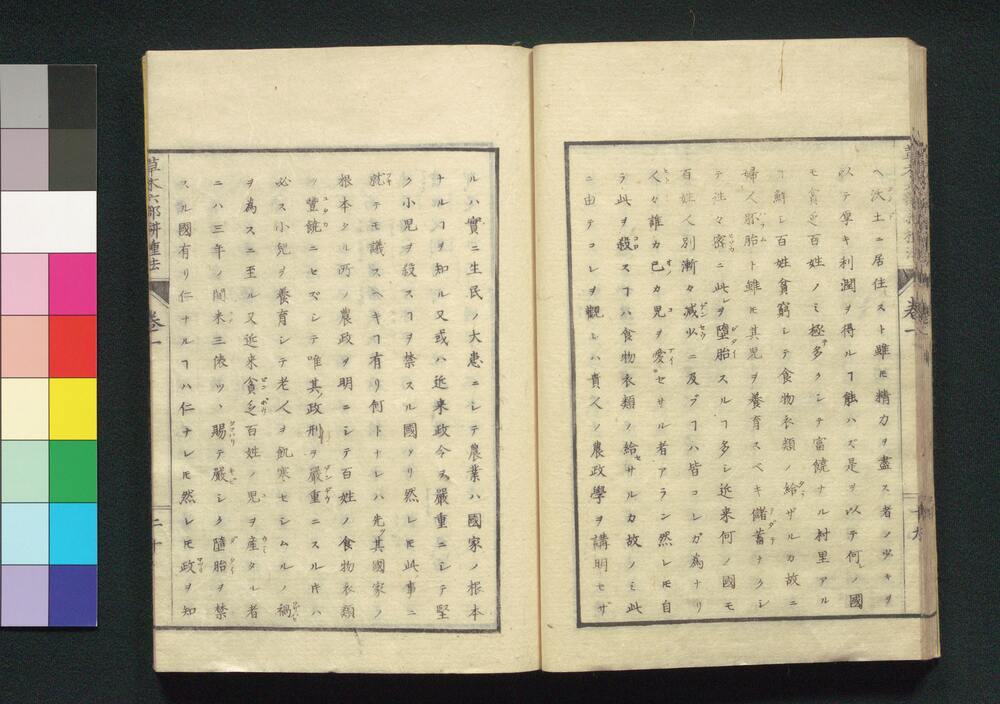 ヘ沃土ニ居住スト雖モ精力ヲ盡ス者ノ少キヲ
以テ厚キ利潤ヲ得ルヿ能ハズ是ヲ以テ何ノ國
モ貧乏百姓ノミ極多クシテ富饒ナル村里アル
ヿ鮮シ百姓貧窮シテ食物衣類ノ給ザルカ故ニ
婦人胚胎ト雖モ其兒ヲ養育スベキ儲蓄ナクシ
テ往々密ニ此レヲ堕胎スルヿ多シ近来何ノ國モ
百姓人別漸々減少ニ及ブヿハ皆コレガ為ナリ
人々誰カ己カ兒ヲ愛セサル者アラン然レ𪜈自
ラ此ヲ殺スヿハ食物衣類ノ給サルカ故ノミ此
ニ由テコレヲ觀レハ貴人ノ農政學ヲ講明セザ
ルハ實ニ生民ノ大患ニシテ農業ハ國家ノ根本
ナルヿヲ知ル又或ハ近来政令ヲ嚴重ニシテ堅
ク小児ヲ殺スヿヲ禁スル國アリ然レ𪜈此事ニ
就テモ議スヘキヿ有リ何トナレハ先ツ其國家ノ
根本タル所ノ農政ヲ明ニシテ百姓ノ食物衣類
ヲ豐饒ニセズシテ唯其政刑ヲ嚴重ニスル𪜈ハ
必ス小兒ヲ養育シテ老人ヲ飢寒セシムルノ禍
ヲ為スニ至ル又近来貧乏百姓ノ兒ヲ産タル者
ニハ三年ノ間米三俵ツヽ賜テ嚴シク堕胎ヲ禁
スル國有リ仁ナルヿハ仁ナレ𪜈然レ𪜈政ヲ知
草木六部耕種法
卷一
二十